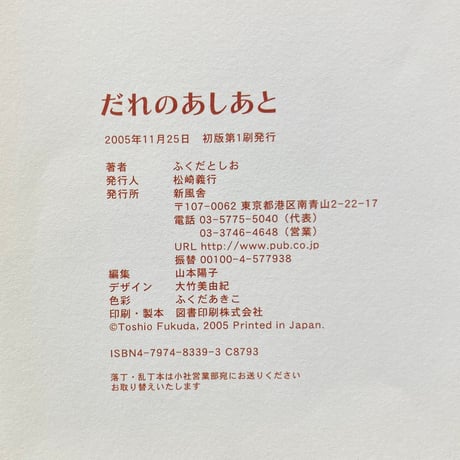 だれのあしあと
2005年11月25日　初版第1刷発行
著者　ふくだとしお
発行人　松崎義行
発行所　新風舎
〒107-0062 東京都港区南青山2-22-17
電話 03-5775-5040（代表）
03-3746-4648（営業）
URL http://www.pub.co.jp
振替 00100-4-577938
編集　山本陽子
デザイン　大竹美由紀
色彩　ふくだあきこ
印刷・製本　図書印刷株式会社
©Toshio Fukuda, 2005 Printed in Japan.
ISBN4-7974-8339-3 C8793
落丁・乱丁本は小社営業部宛にお送りください
お取り替えいたします